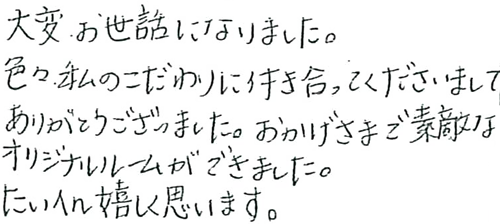 大変お世話になりました。
色々私のこだわりに付き合ってくださいまして
ありがとうございました。おかげさまで素敵な
オリジナルルームができました。
たいへん嬉しく思います。